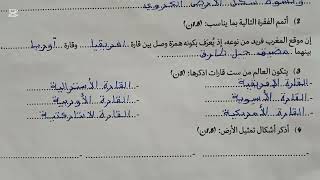 2) أتمم الفقرة التالية بما يناسب: (1,5ن)
إن موقع المغرب فريد من نوعه، إذ يُعرَف بكونه همزة وصل بين قارة...افريقيا...وقارة...أوربا
بينهما...مضيق جبل طارق...
3) يتكون العالم من ست قارات اذكرها: (3ن)
-القارة الإفريقية -القارة الأسترالية
-القارة الأسيوية -القارة الأوربية
-القارة الأمريكية -القارة
4) أذكر أشكال تمثيل الأرض: